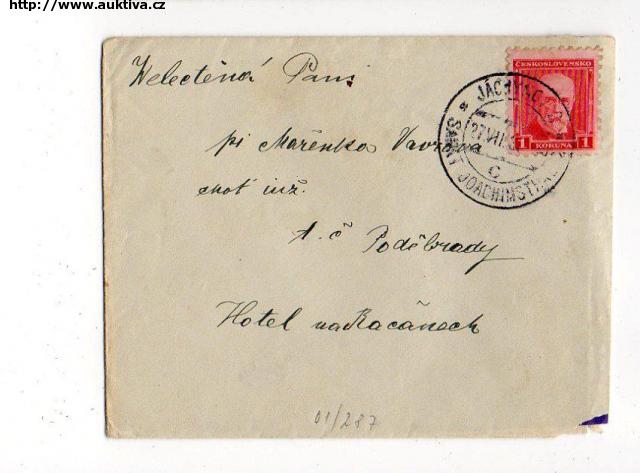 http://www.auktiva.cz
Welectěná Paní
ČESKOSLOVENSKO
1 KORUNA 1
JÁCHYMOV
SANKT JOACHIMSTHAL
27.VII.
C
pí Mařenka Vavrova
choť inž.
t. č Poděbrady
Hotel na Racanech
01/287